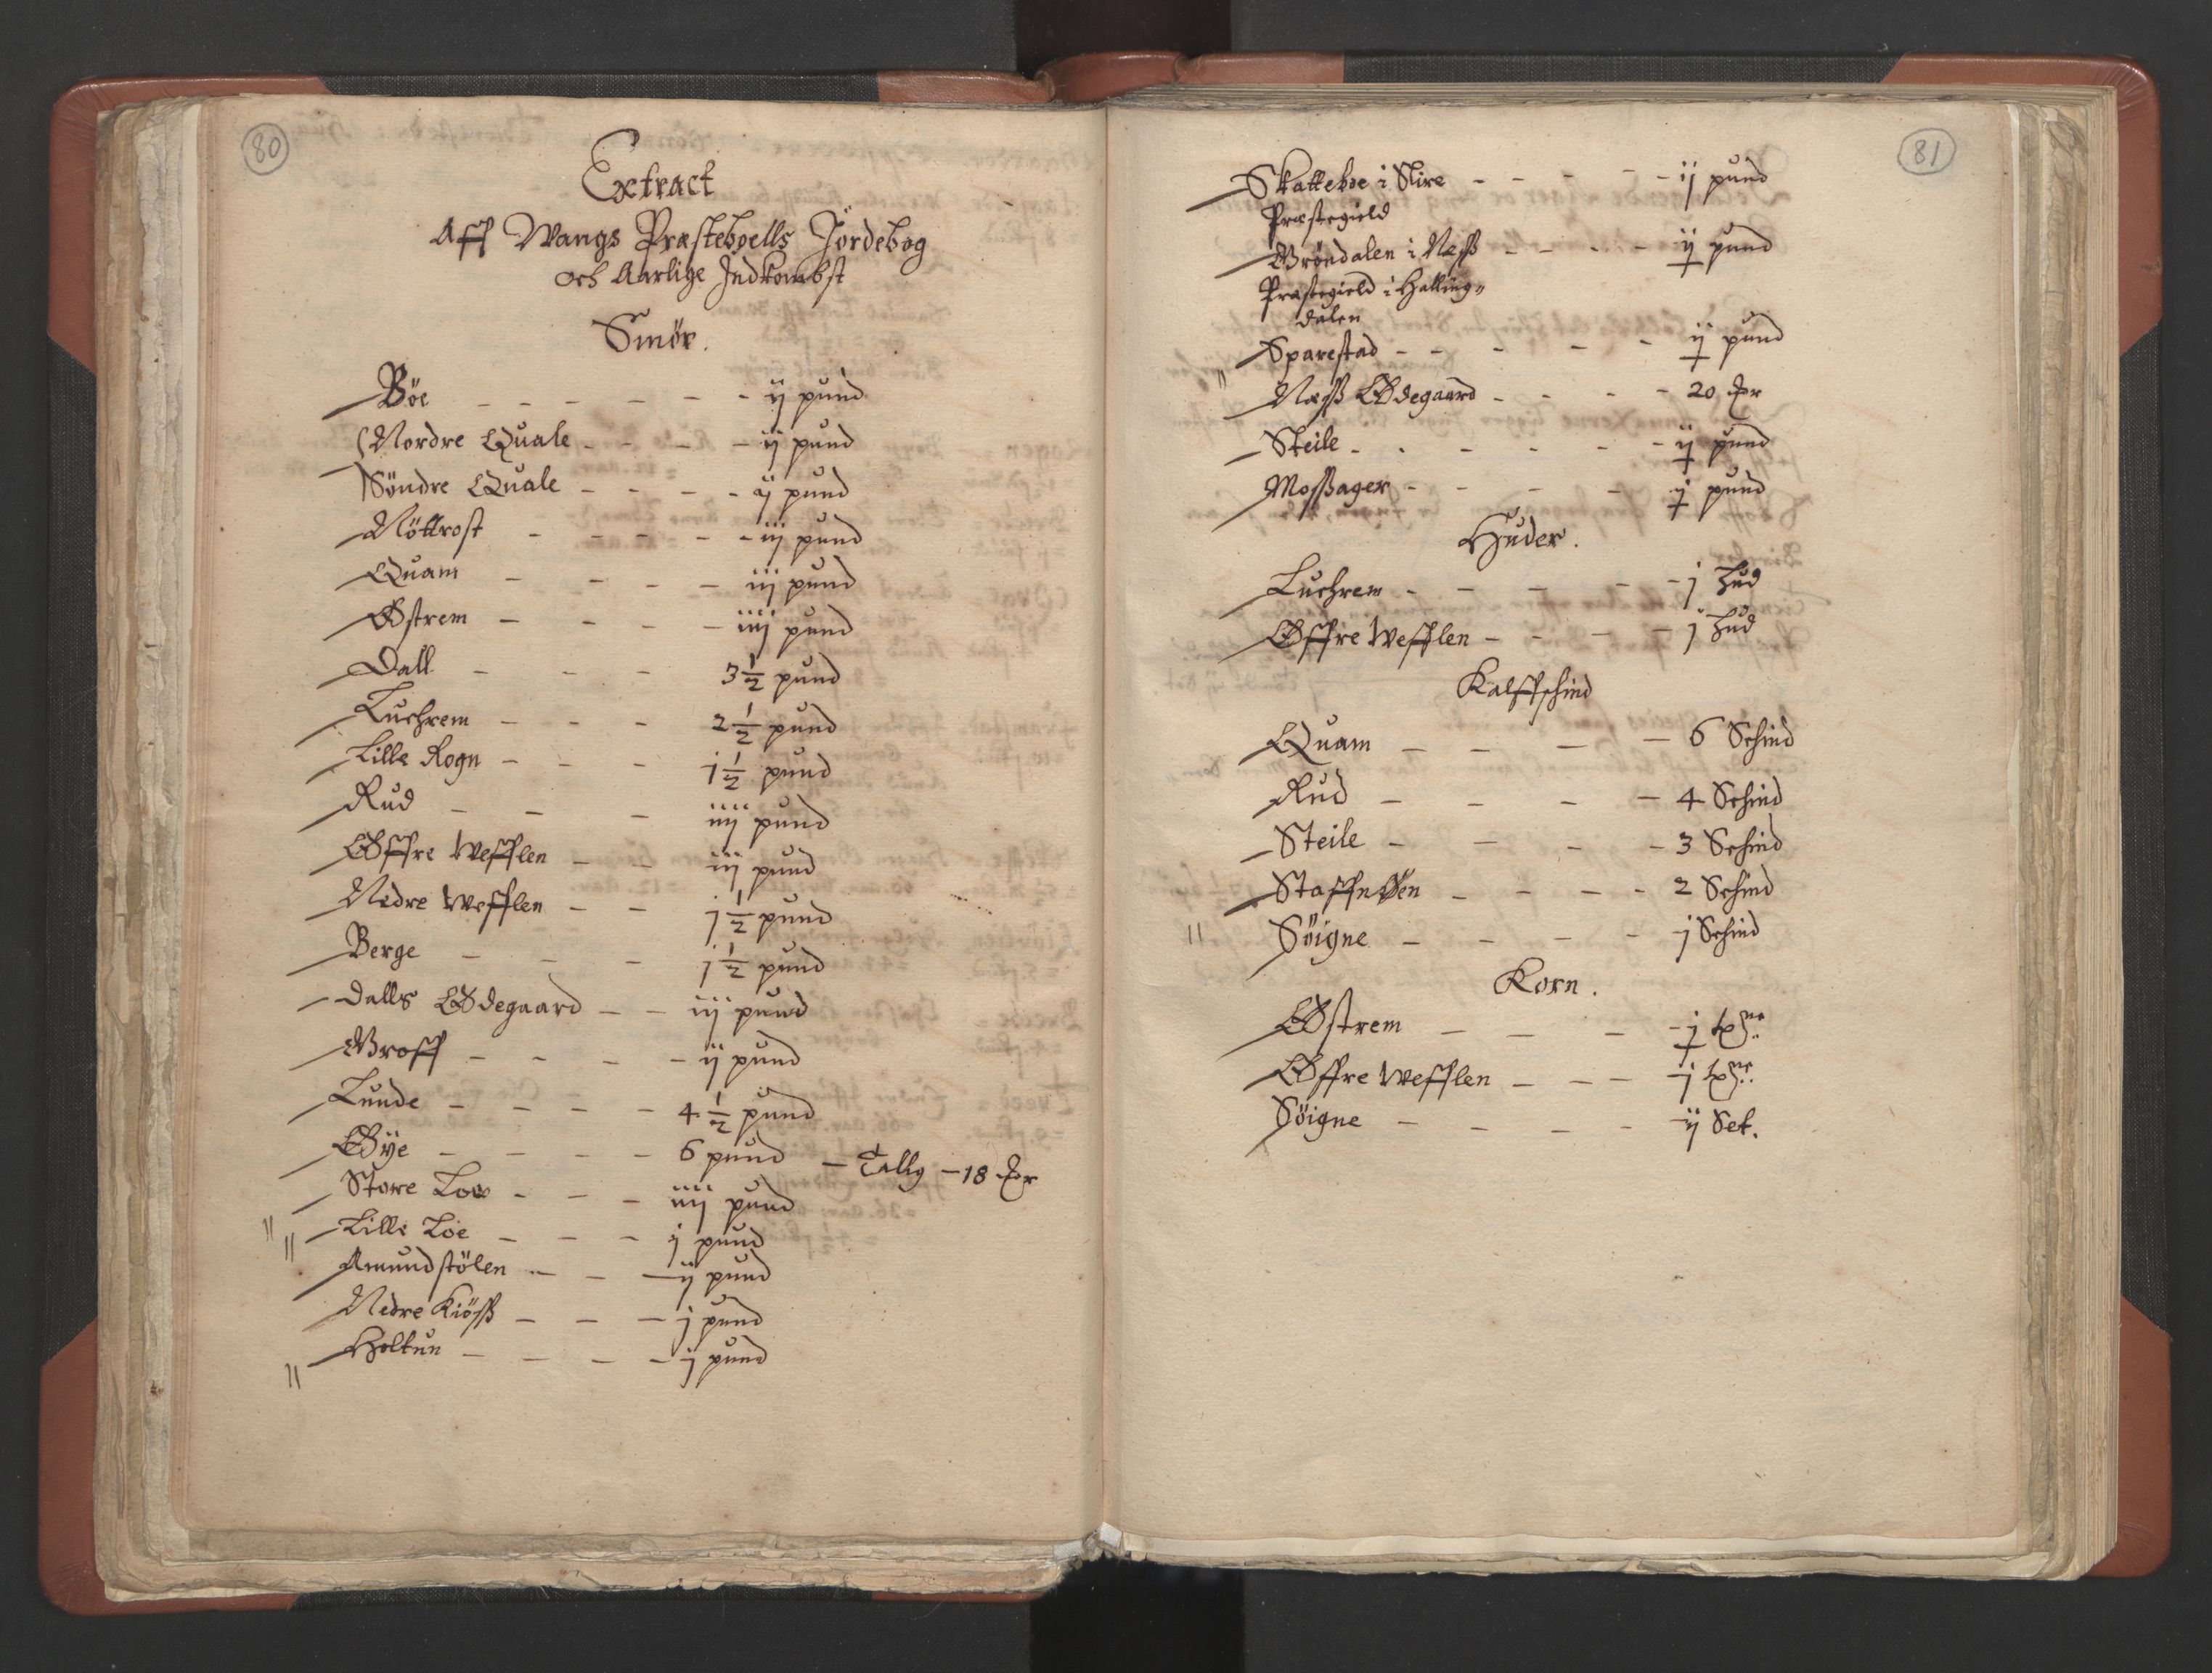 80
Extract
Aff Wangs Præsteboells Jördebog
och Aarlige Indkombst
Smör.
Böe - - - - - - ij pund
Nordre Quale - - - - ij pund
Söndre Quale - - - - ij pund
Nöttrost - - - - - iij pund
Quam - - - - iij pund
Østrem - - - - iiij pund
Dall - - - 3 1/2 pund
Luchrem - - - 2 1/2 pund
Lille Rogn - - - j 1/2 pund
Rud - - - iiij pund
Øffre Wefflen - - iij pund
Nedre Wefflen - - j 1/2 pund
Berge - - - j 1/2 pund
Dalls Ødegaard - - iij pund
Groff - - - - ij pund
Lunde - - - - 4 1/2 pund
Øÿe - - - - 6 pund - Tallg - 18
Store Loe - - - iiij pund
" Lille Loe - - - j pund
" Amundstölen - - - ij pund
Nedre Kiöss - - - j pund
" Holtun - - - - ij pund
81
Skatteboe i Slire - - - - - ij pund
Præstegield
Gröndalen i Næss - - - - ij pund
Præstegield i Halling"
dalen
Sparestad - - - - - ij pund
" Næss Ødegaard - - - - 20
Steile - - - - - - ij pund
Mossager - - - - j pund
Huder.
Luchrem - - - - - j Hud
Øffre Wefflen - - - - j Hud
Kalffschind
Quam - - - - 6 Schind
Rud - - - - 4 Schind
Steile - - - - 3 Schind
Staffnssen - - - - 2 Schind
" Söigne - - - - j Schind
Korn.
Østrem - - - - j
Øffre Wefflen - - - j
Söigne - - - - ij Set.